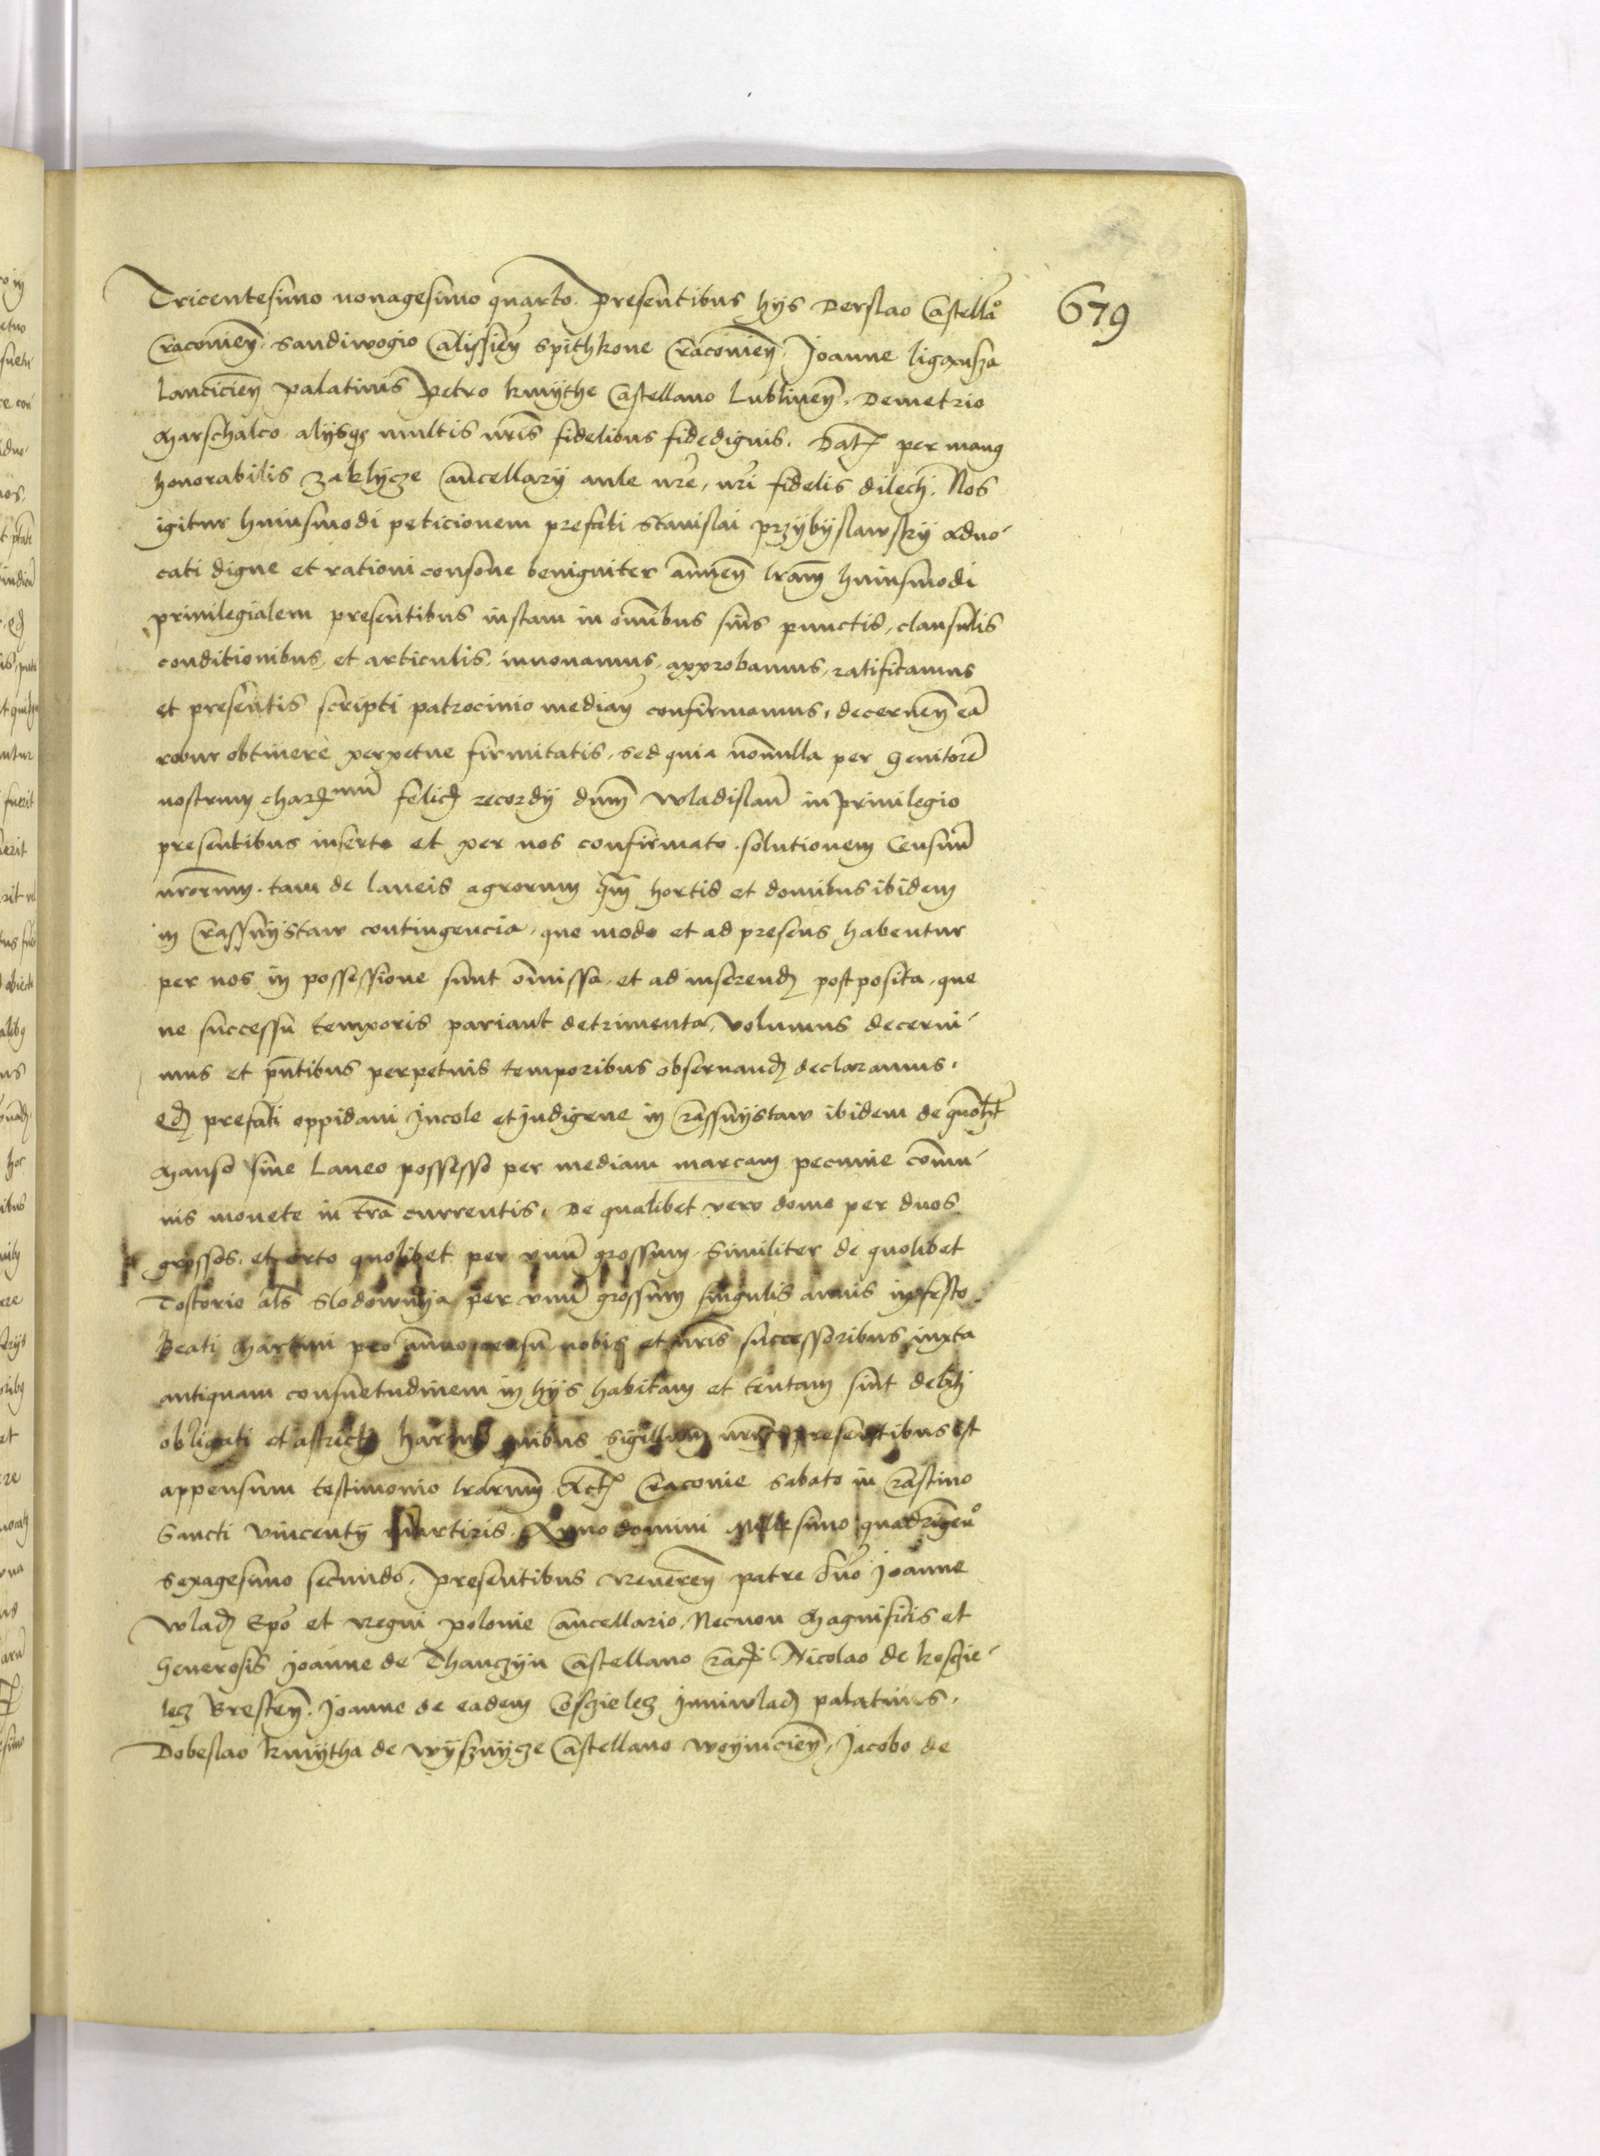 Tricentesimo nonagesimo quarto. Presentibus hijs Derslao Castellō
Cracovieñ. Sandiwogio Calissieñ Spithkone Cracovieñ. Joanne ligansza
Lancicieñ palatinis Petro kmythe Castellano Lublineñ. Demetrio
Marschalco. alijsqꝫ multis nr̄is fidelibus fidedignis. Dat per manꝯ
honorabilis zaklycze Cancellarij aule nr̄e, nr̄i fidelis dilecti. Nos
igitur huiusmodi peticionem prefati Stanislai przybyslawsky advo-
cati digne et rationi consone benigniter anueñ lr̄am huiusmodi
privilegialem presentibus insertam in om̄ibus suis punctis, clausulis
conditionibus, et articulis. innovamus, approbamus, ratificamus
et presentis scripti patrocinio mediañ confirmamus, decerneñ eā
robur obtinere perpetue firmitatis. Sed quia nōnulla per genitorē
nostrum charissimū felicꝫ recordij dnm̄ wladislaū in privilegio
presentibus inserto et per nos confirmato. solutionem Censuū
nr̄orum. tam de laneis agrorum qm̄ hortis et domibus ibidem
in Crassnijstaw contingencia, que modo et ad presens habentur
per nos in possessione sunt om̄issa, et ad inserendꝫ postposita, que
ne successu temporis pariant detrimenta, volumus decerni-
mus et pn̄tibus perpetuis temporibus observandꝫ declaramus.
Qꝫ prefati oppidani Incole et Indigene in Crassnijstaw ibidem de quolꝫt
Manso sive Laneo possesso per mediam marcam pecunie com̄u-
nis monete in tr̄a currentis. De qualibet vero domo per duos
grossos. et orto quolibet per unū grossum. Similiter de quolibet
Tostorio als̄ Slodownya per unū grossum singulis annis in festo
Beati Martini pro annuo censu nobis et nr̄is successoribus iuxta
antiquam consuetudinem in hijs habitam et tentam sint debiti
obligati et astricti harum quibus Sigillum nr̄m presentibus est
appensum testimonio lr̄arum. Act Cracovie Sabato in Crastino
Sancti vincentij Martiris. Anno domini Millesimo quadringeñº
sexagesimo secundo. Presentibus Revereñ patre dn̄o Joanne
wladꝫ Ep̄o et Regni polonie Cancellario. Necnon Magnificis et
Generosis Joanne de Thanczyn Castellano Cracꝫ Nicolao de koszcie-
lecz Bresteñ. Joanne de eadem Coszcielecz Juniwladꝫ palatinis.
Dobeslao kmijtha de wyssnijcze Castellano woynicieñ, Jacobo de
679